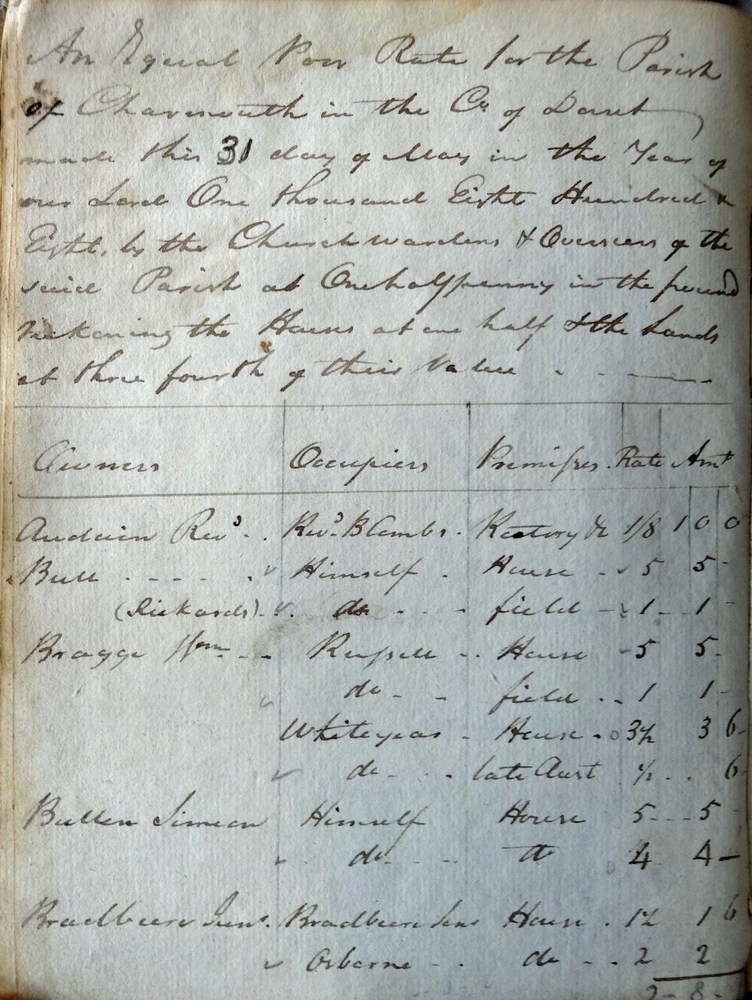 An Equal Poor Rate for the Parish
of Charmouth in the Co. of Dorset
made this 31 day of May in the Year of
our Lord One thousand Eight Hundred &
Eight, by the Churchwardens & Overseers of the
said Parish at One halfpenny in the pound
reckoning the Houses at one half & the Lands
at three fourth of their Value
Owners Occupiers Premises Rate Amt
Audain Revd. Revd. B Combs. Rectory &c 1/8 1 0 0
Bull Himself House 5 5 -
(Rickards) do field 1 1 -
Bragge Wm Russell House 5 5 -
do field 1 1 -
Whitegeas House 3½ 3 6
do late Aust ½ 6
Bullen Simeon Himself House 5 5 -
do 4 4 -
Bradbeere Senr. Bradbeere Senr House 1½ 1 6
Osborne do 2 2
2 8 -